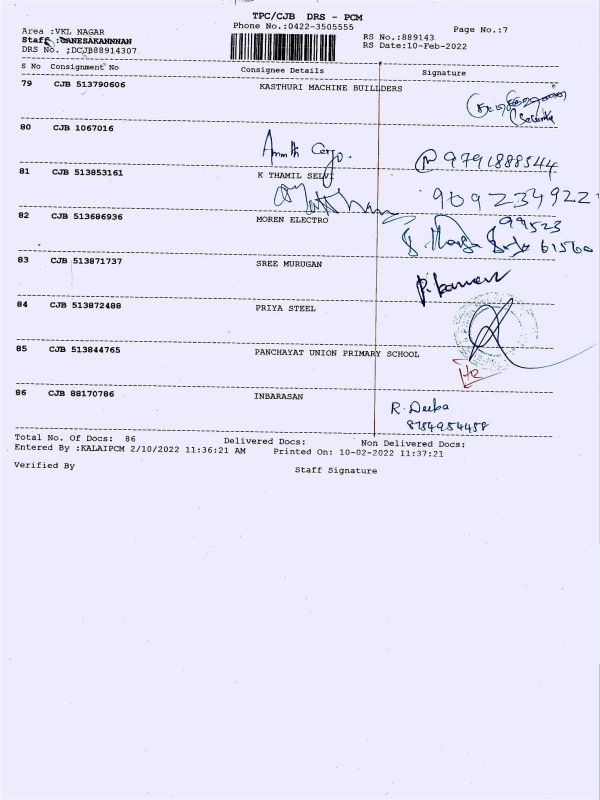 TPC/CJB DRS - PCM
Phone No.:0422-3505555
Page No.:7
Area :VKL NAGAR
RS No.:889143
Staff :GANESAKANNNAN
RS Date:10-Feb-2022
DRS No. ;DCJB88914307
S No Consignment No Consignee Details Signature
79 CJB 513790606 KASTHURI MACHINE BUILLDERS
80 CJB 1067016
Cargo. 9791888544
81 CJB 513853161 K THAMIL SELVI
9092234922
82 CJB 513686936 MOREN ELECTRO
99523
61560
83 CJB 513871737 SREE MURUGAN
84 CJB 513872488 PRIYA STEEL
85 CJB 513844765 PANCHAYAT UNION PRIMARY SCHOOL
86 CJB 88170786 INBARASAN
R. Deeba
8754954458
Total No. Of Docs: 86 Delivered Docs: Non Delivered Docs:
Entered By :KALAIPCM 2/10/2022 11:36:21 AM Printed On: 10-02-2022 11:37:21
Verified By Staff Signature